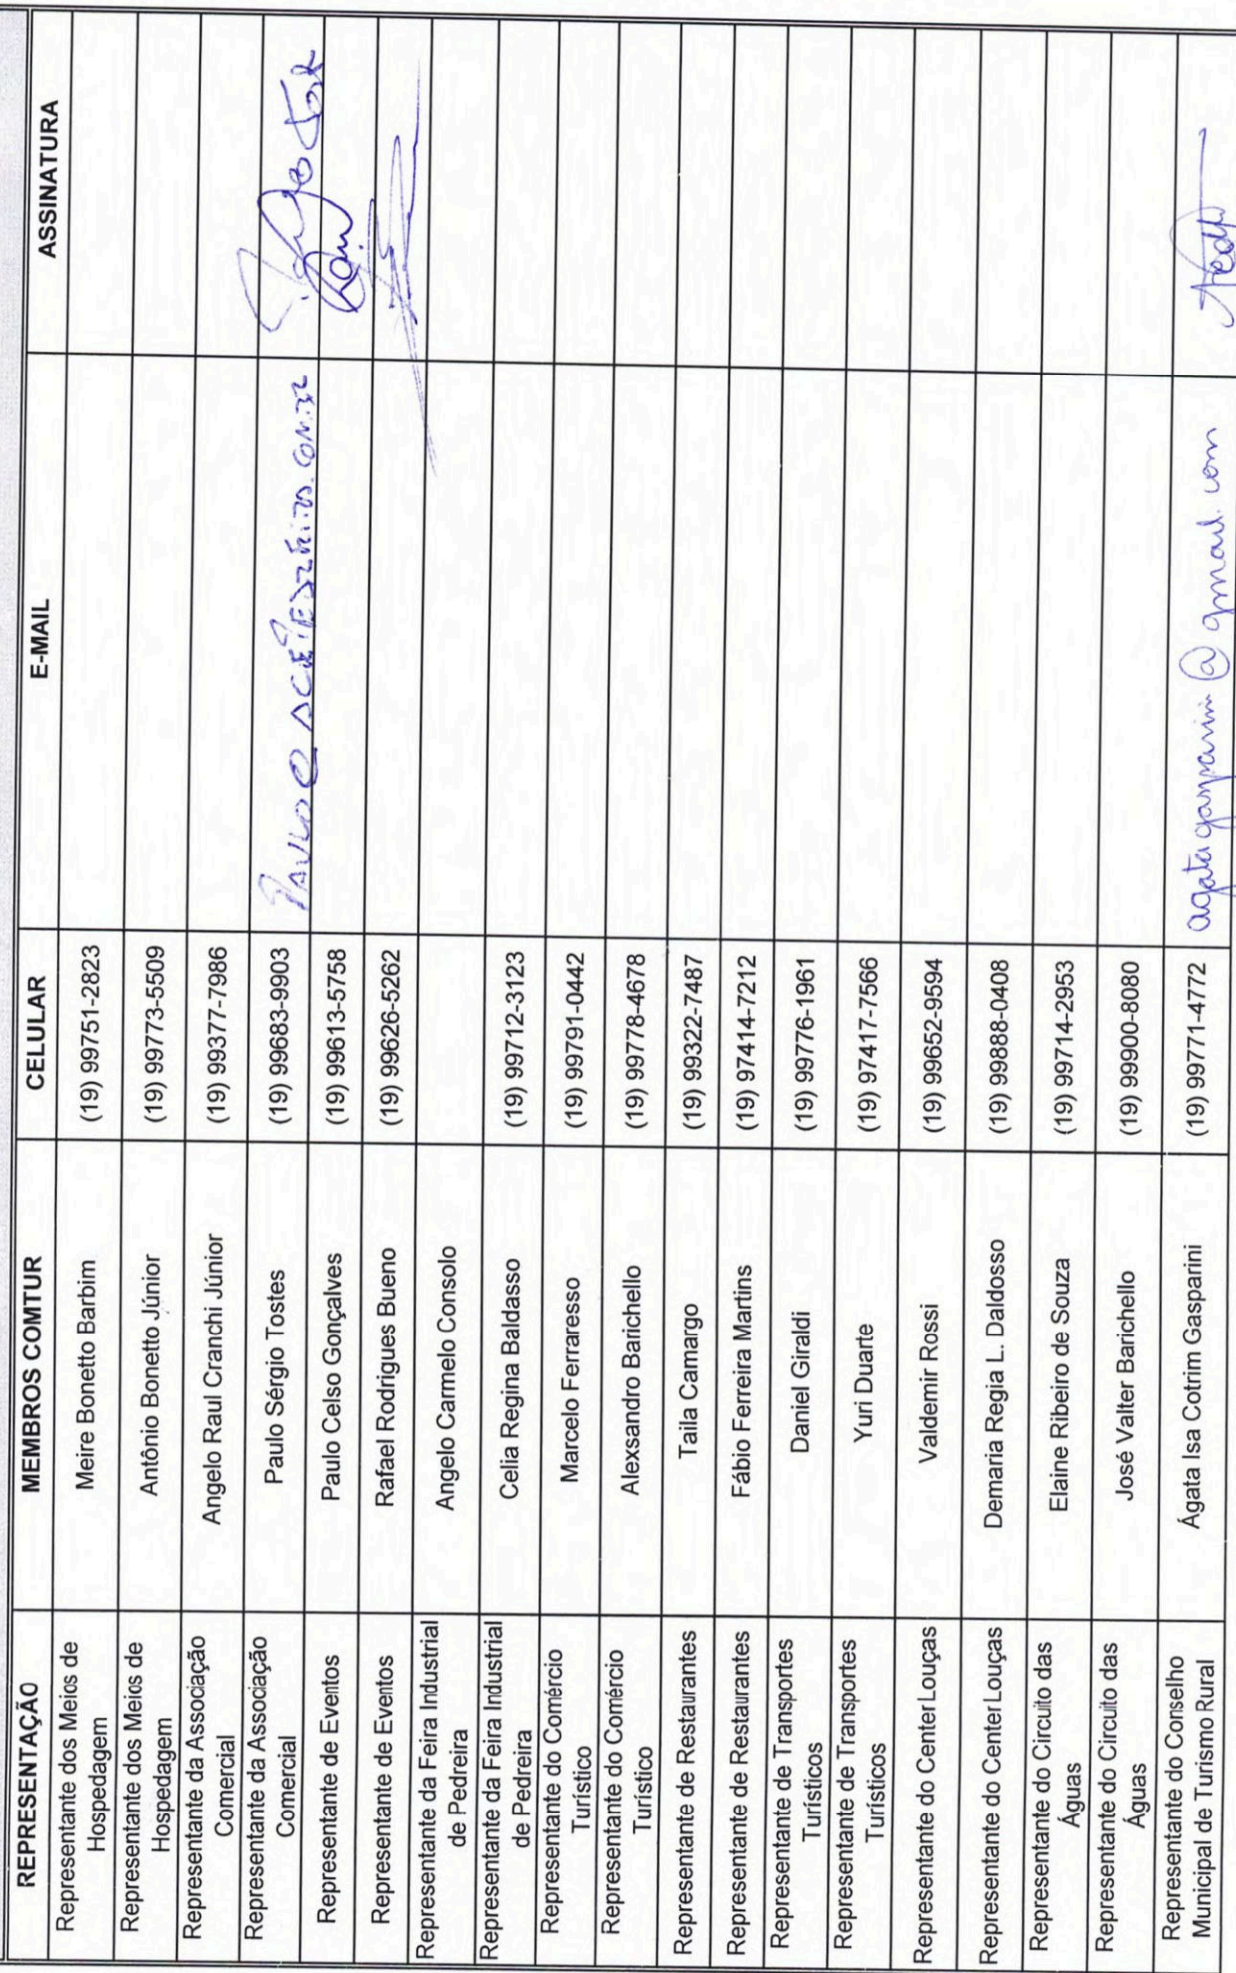 REPRESENTAÇÃO MEMBROS COMTUR CELULAR E-MAIL ASSINATURA
Representante dos Meios de
Hospedagem Meire Bonetto Barbim (19) 99751-2823
Representante dos Meios de
Hospedagem Antônio Bonetto Júnior (19) 99773-5509
Representante da Associação
Comercial Angelo Raul Cranchi Júnior (19) 99377-7986
Representante da Associação
Comercial Paulo Sérgio Tostes (19) 99683-9903
Representante de Eventos Paulo Celso Gonçalves (19) 99613-5758
Representante de Eventos Rafael Rodrigues Bueno (19) 99626-5262
Representante da Feira Industrial
de Pedreira Angelo Carmelo Consolo
Representante da Feira Industrial
de Pedreira Celia Regina Baldasso (19) 99712-3123
Representante do Comércio
Turístico Marcelo Ferraresso (19) 99791-0442
Representante do Comércio
Turístico Alexsandro Barichello (19) 99778-4678
Representante de Restaurantes Taila Camargo (19) 99322-7487
Representante de Restaurantes Fábio Ferreira Martins (19) 97414-7212
Representante de Transportes
Turísticos Daniel Giraldi (19) 99776-1961
Representante de Transportes
Turísticos Yuri Duarte (19) 97417-7566
Representante do Center Louças Valdemir Rossi (19) 99652-9594
Representante do Center Louças Demaria Regia L. Daldosso (19) 99888-0408
Representante do Circuito das
Águas Elaine Ribeiro de Souza (19) 99714-2953
Representante do Circuito das
Águas José Valter Barichello (19) 99900-8080
Representante do Conselho
Municipal de Turismo Rural Ágata Isa Cotrim Gasparini (19) 99771-4772 agatagasparini@gmail.com